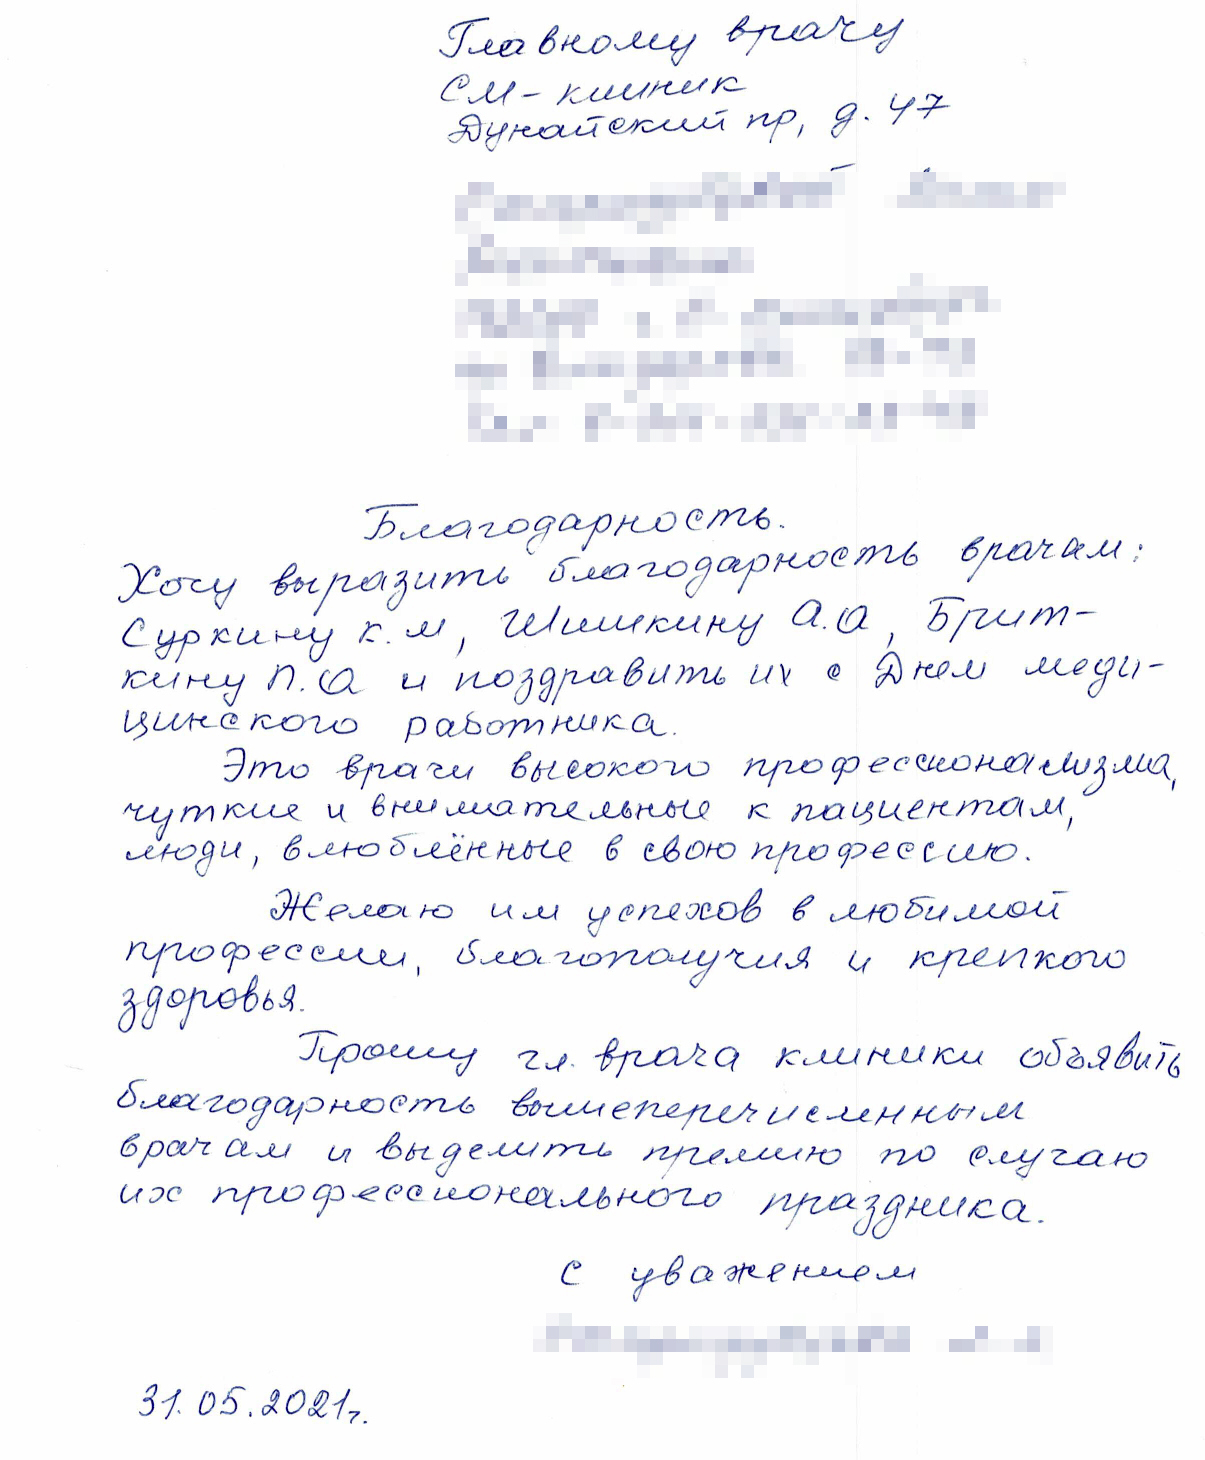 Главному врачу
СМ-клиник
Дунайский пр, д. 47
Благодарность.
Хочу выразить благодарность врачам:
Суркину К.М, Шишкину А.А, Брит-
кину П.А и поздравить их с Днем меди-
цинского работника.
Это врачи высокого профессионализма,
чуткие и внимательные к пациентам,
люди, влюблённые в свою профессию.
Желаю им успехов в любимой
профессии, благополучия и крепкого
здоровья.
Прошу гл. врача клиники объявить
благодарность вышеперечисленным
врачам и выделить премию по случаю
их профессионального праздника.
С уважением
31.05.2021г.